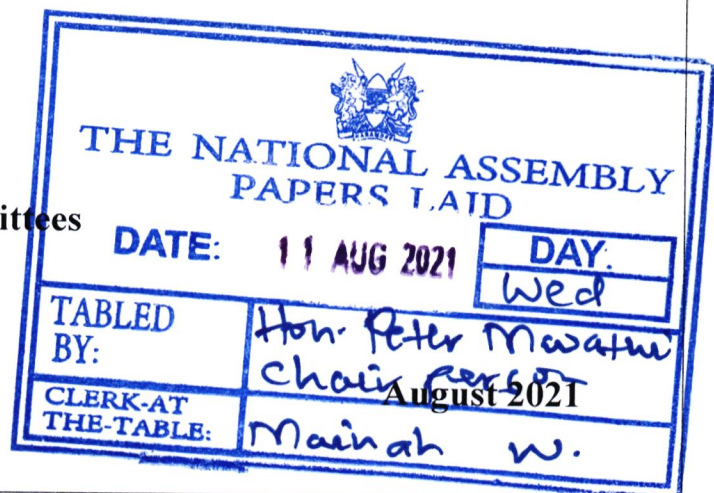 THE NATIONAL ASSEMBLY
PAPERS LAID
ittees
DATE: 11 AUG 2021 DAY:
Wed
TABLED BY: Hon. Peter Mwathi
Chairperson
August 2021
CLERK-AT THE-TABLE: Mainah W.